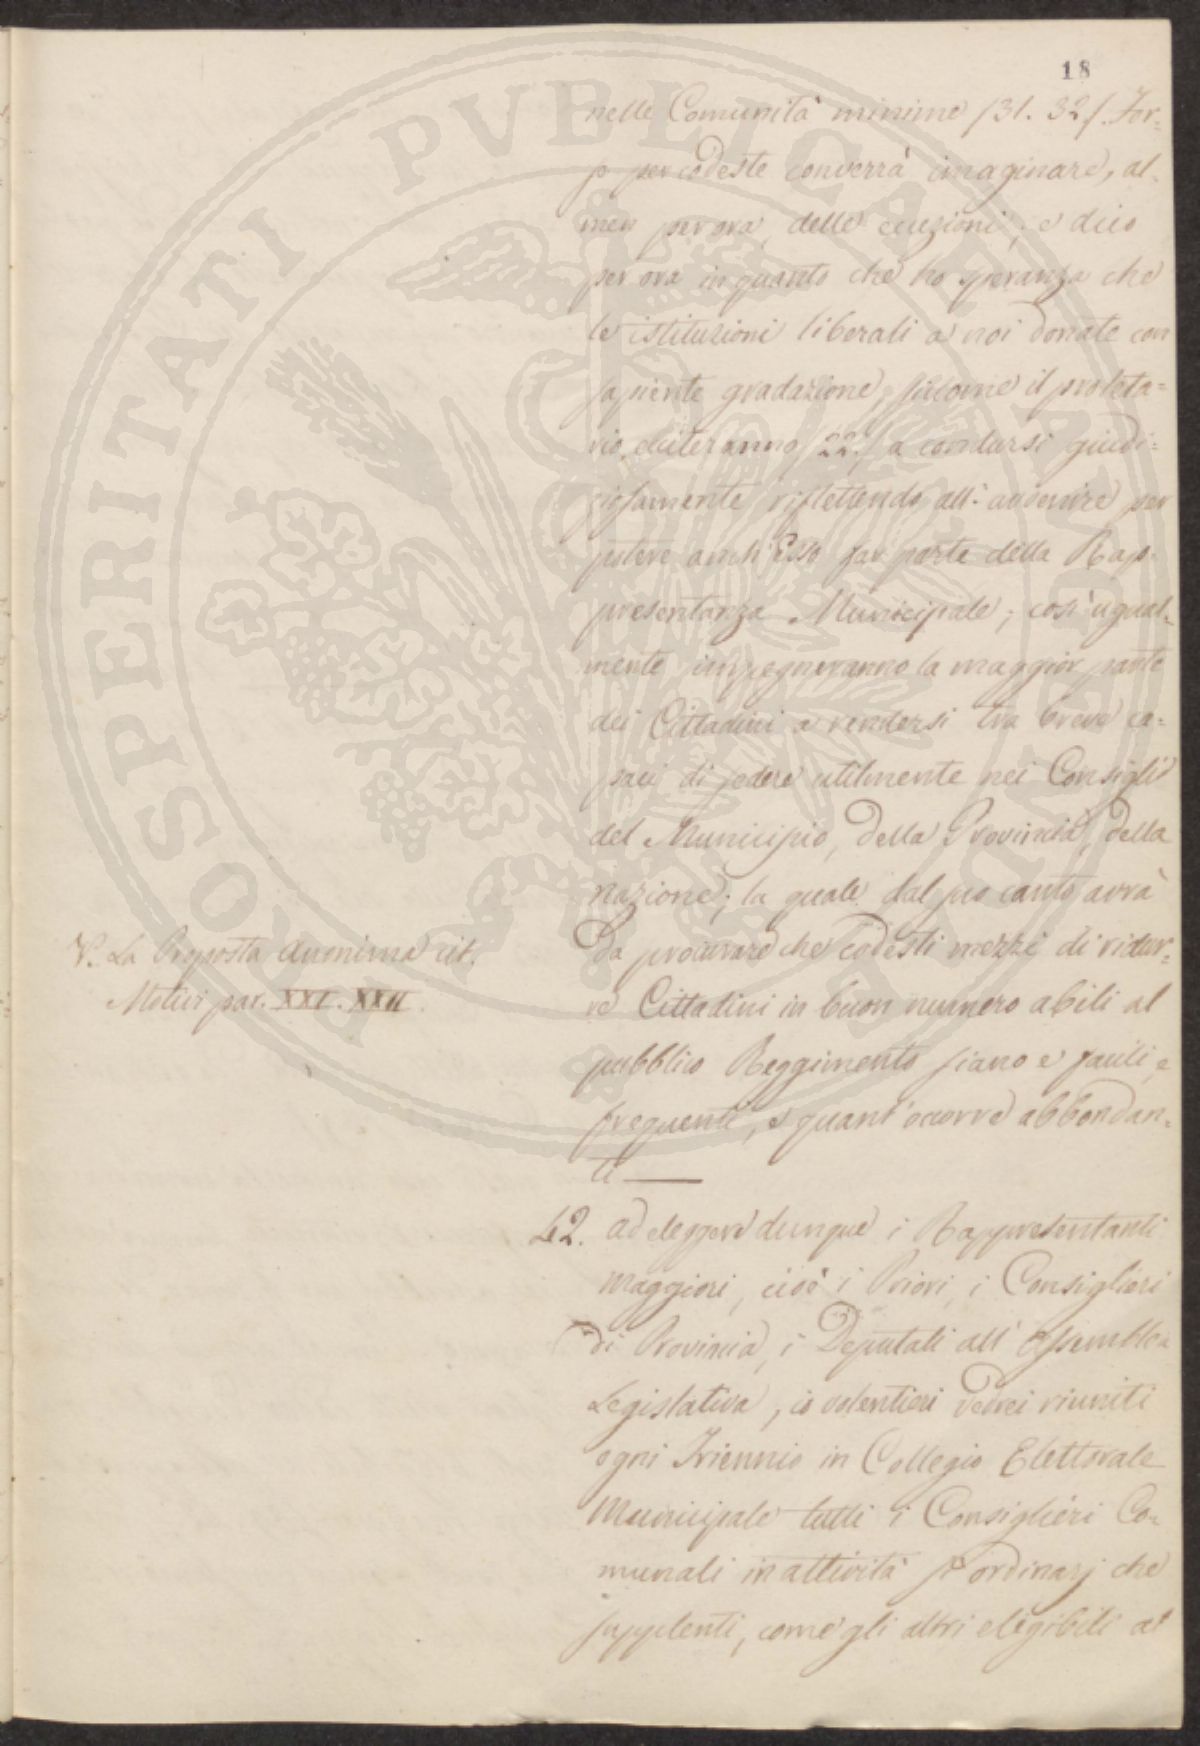 18
nelle Comunità minime /31. 32/. For=
se per codeste converrà imaginare, al=
men per ora, delle eccezioni; e dico
per ora in quanto che ho speranza che
le istituzioni liberali a noi donate con
sapiente gradazione, siccome il proleta=
rio ecciteranno /22./ a condursi giudi=
ziosamente riflettendo all'avvenire per
potere anch'Esso far parte della Rap=
presentanza Municipale; così ugual=
mente impegneranno la maggior parte
dei Cittadini a rendersi tra breve ca=
paci di sedere utilmente nei Consigli
del Municipio, della Provincia, della
nazione; la quale dal suo canto avrà
da procurare che codesti mezzi di ridur=
re Cittadini in buon numero abili al
pubblico Reggimento siano e facili, e
frequenti, e quant'occorre abbondan=
ti —
V. La Proposta Anonima cit.
Motivi par. XXI. XXII.
42. Ad eleggere dunque i Rappresentanti
maggiori, cioè i Priori, i Consiglieri
di Provincia, i Deputati all'Assemblea
Legislativa, io volentieri vedrei riuniti
ogni Triennio in Collegio Elettorale
Municipale tutti i Consiglieri Co=
munali in attività sì ordinarj che
supplenti, come gli altri elegibili al
PROSPERITATI PVBLICAE AVGENDAE